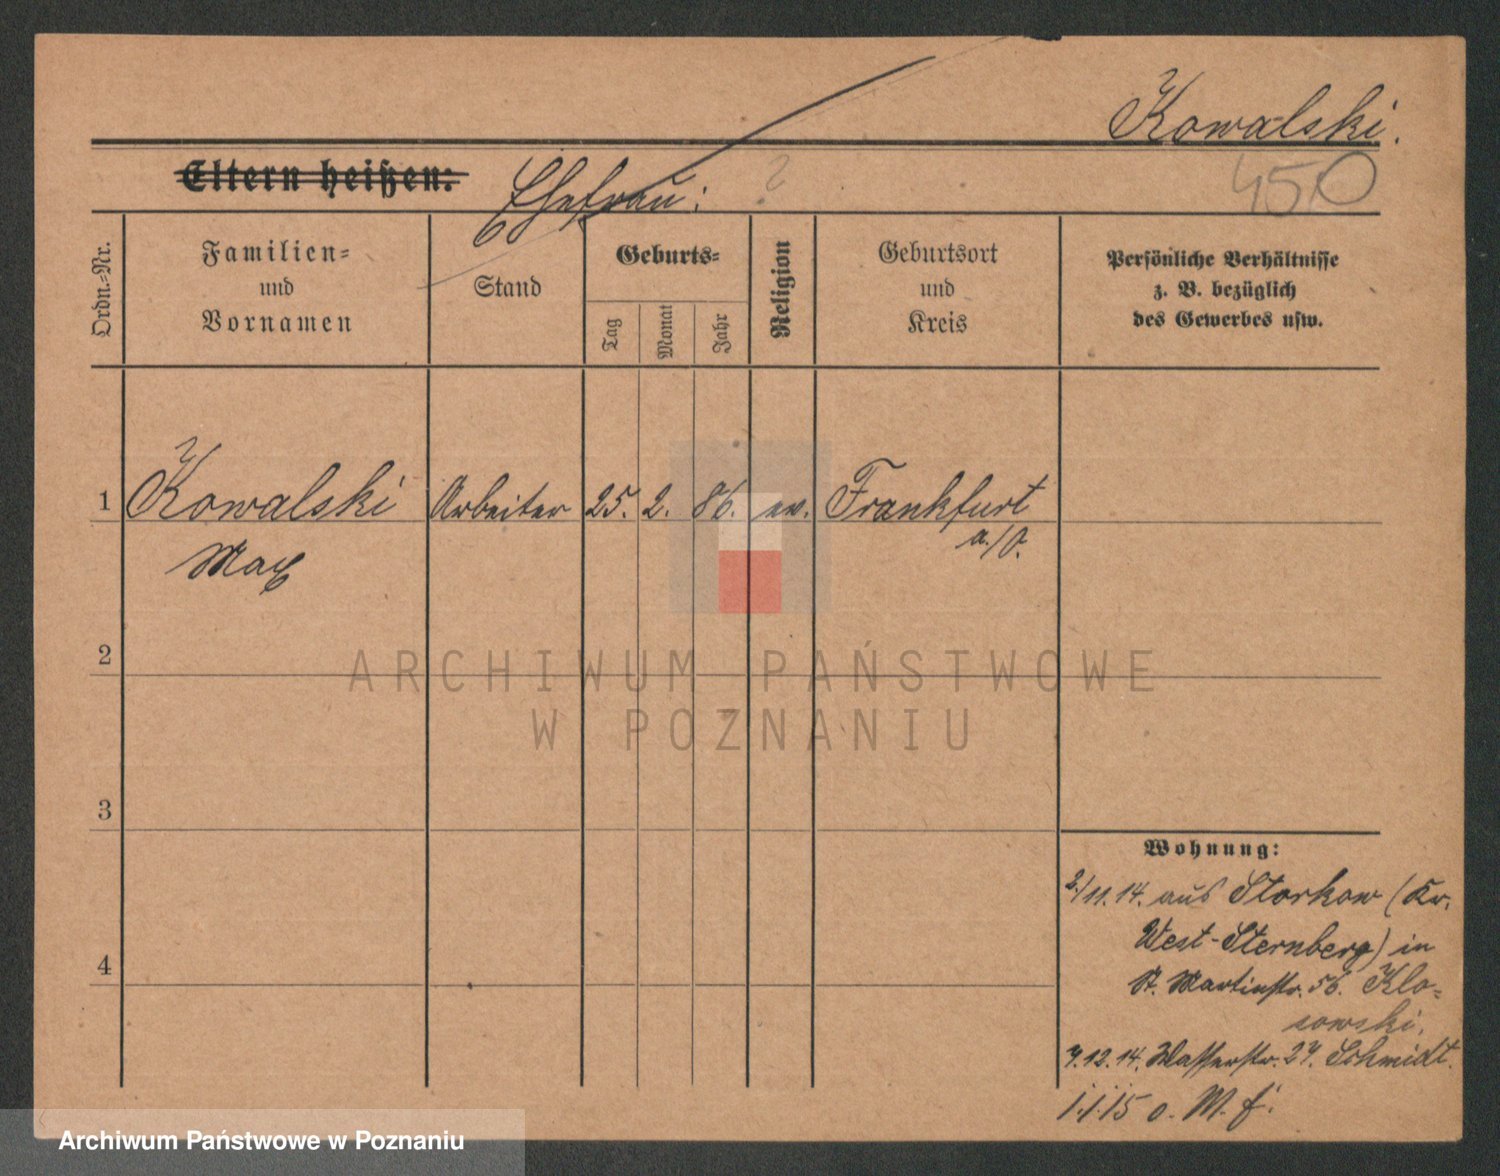 Kowalski.
450
Eltern heißen:
Ehefrau:
?
Ordn.=Nr.
Familien=
und
Vornamen
Stand
Geburts=
Tag
Monat
Jahr
Religion
Geburtsort
und
Kreis
Persönliche Verhältnisse
z. B. bezüglich
des Gewerbes usw.
1 Kowalski Arbeiter 25. 2. 86. ev. Frankfurt
a./O.
Max
2
ARCHIWUM PAŃSTWOWE
W POZNANIU
3
Wohnung:
2./11.14. aus Storkow (Kr.
West-Sternberg) in
4
St. Martinstr. 56. Klo=
sowski.
7.12.14. Wasserstr. 27. Schmidt.
1.1.15 o. M. f.
Archiwum Państwowe w Poznaniu